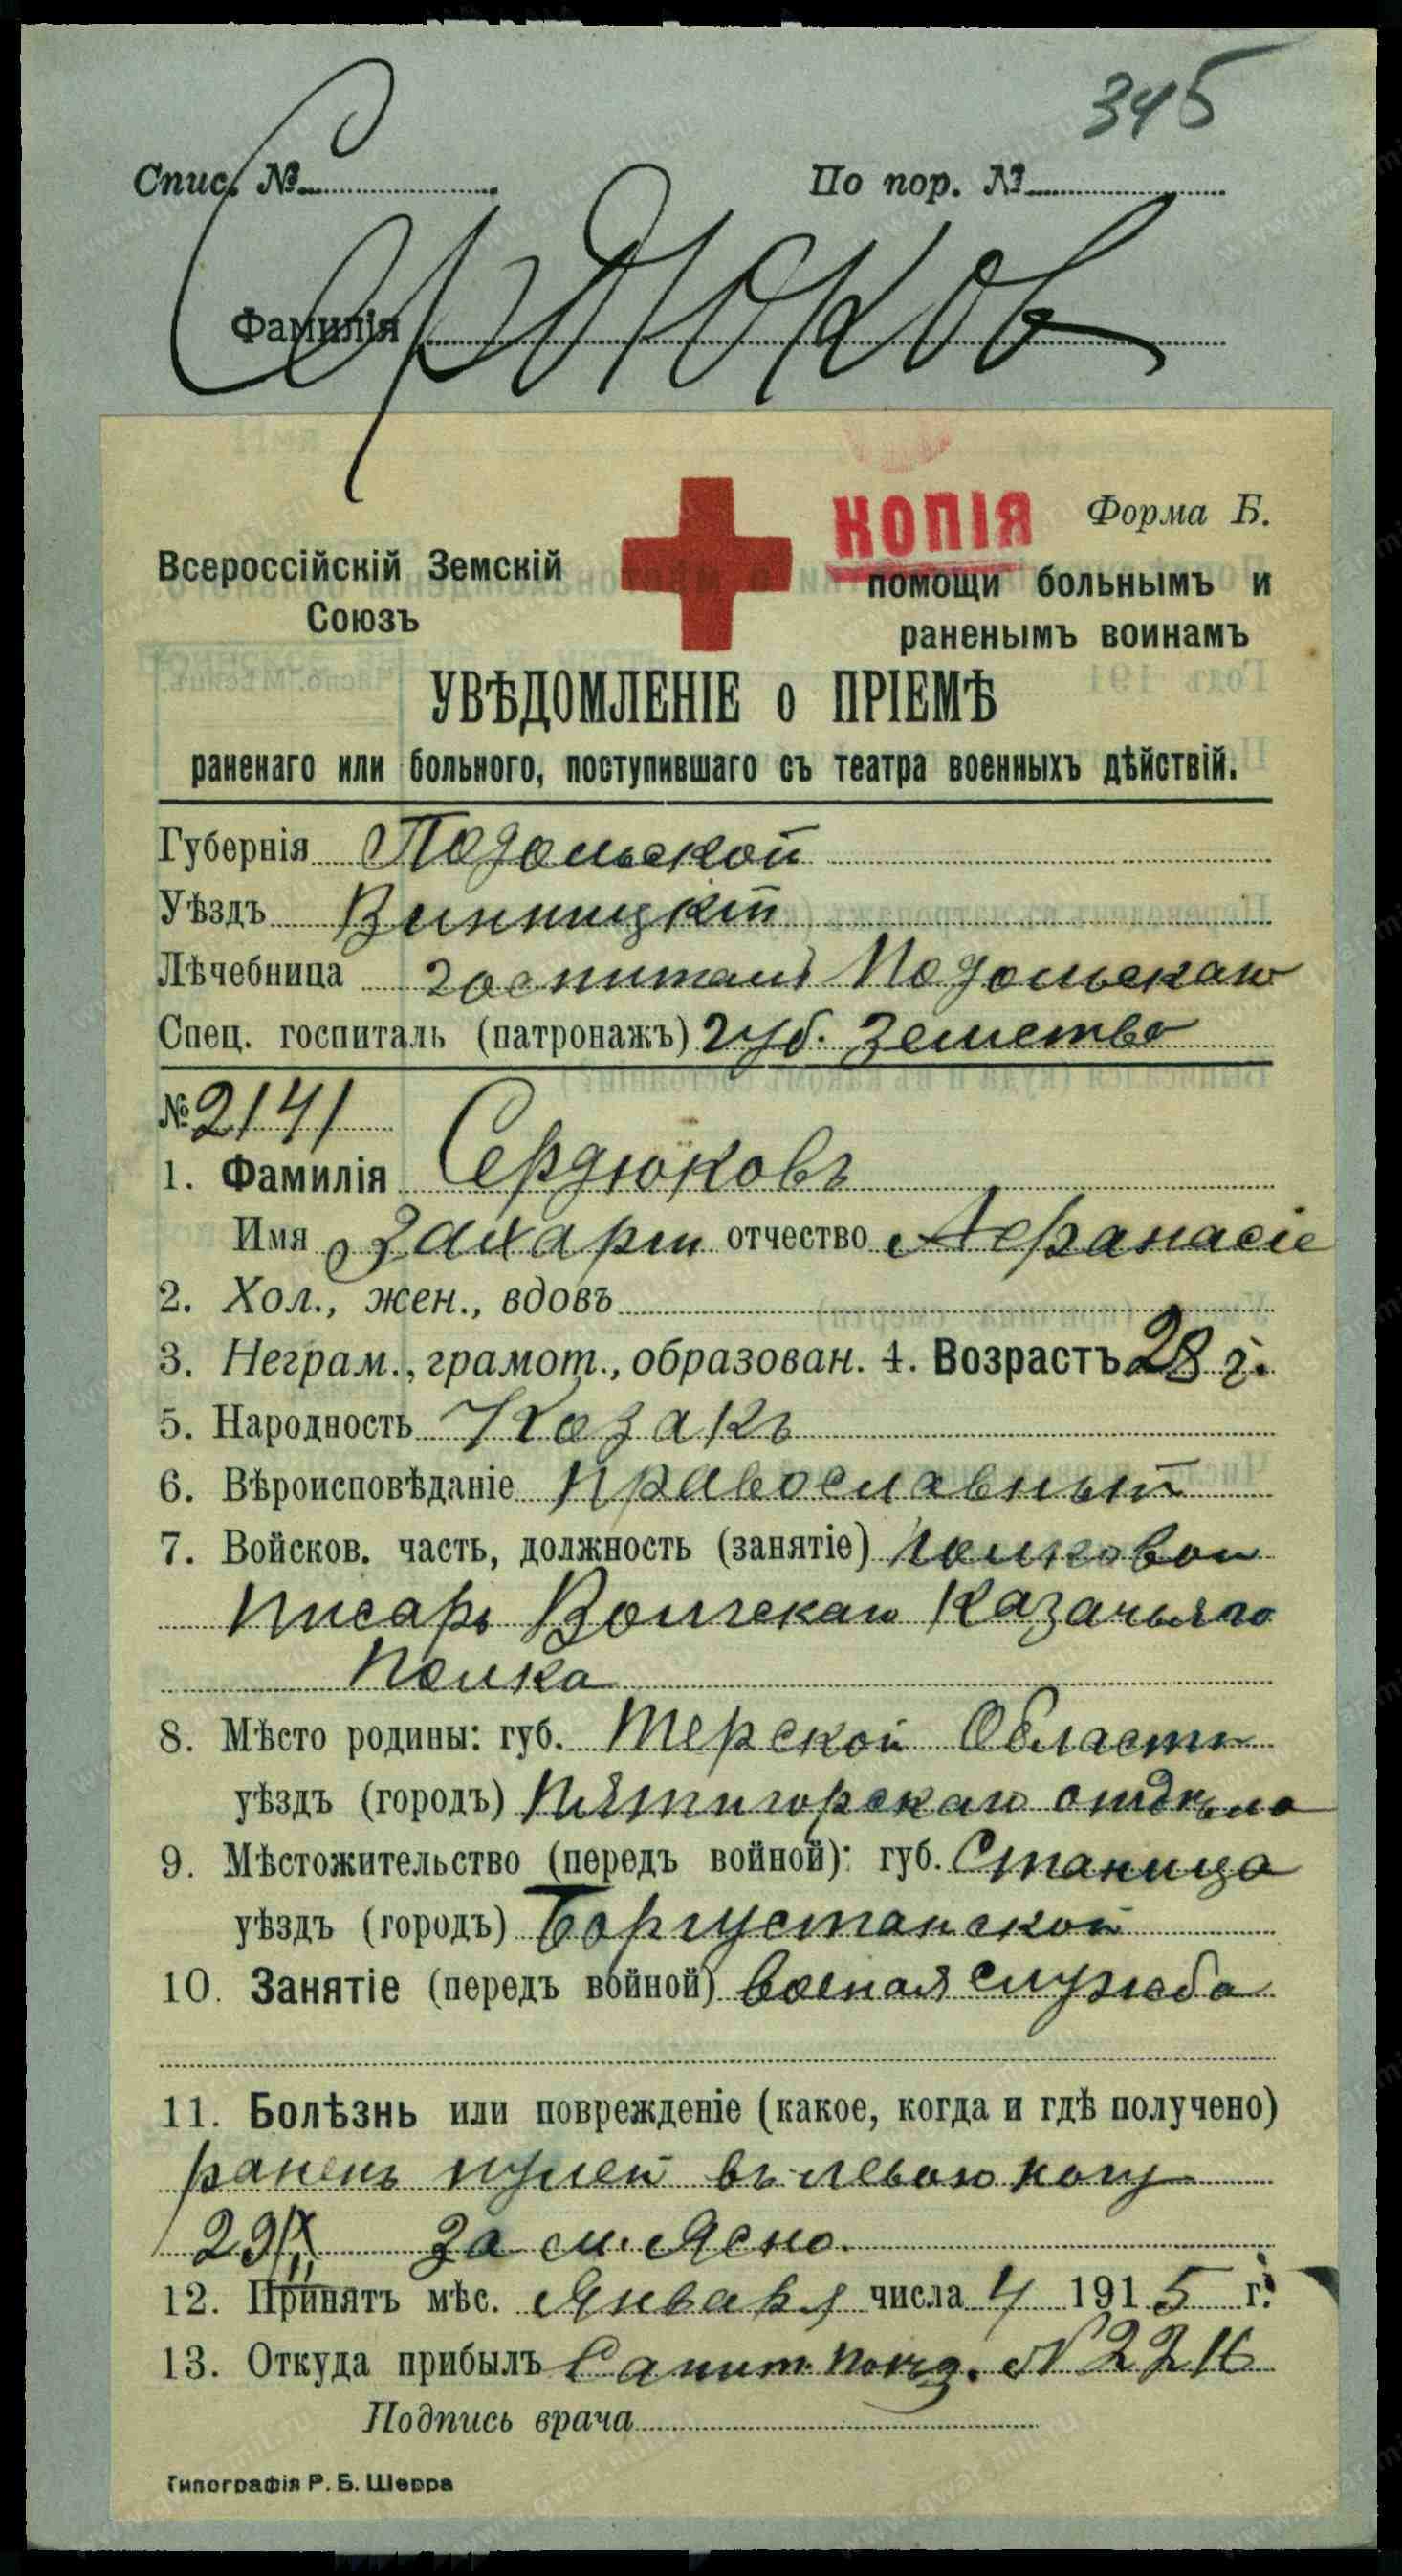 345
Спис. № По пор. №
Фамилія Сердюков
КОПІЯ Форма Б.
Всероссійскій Земскій
Союзъ
помощи больнымъ и
раненымъ воинамъ
УВѢДОМЛЕНІЕ о ПРІЕМѢ
раненаго или больного, поступившаго съ театра военныхъ дѣйствій.
Губернія Подольской
Уѣздъ Винницкій
Лѣчебница госпиталь Подольскаго
Спец. госпиталь (патронажъ) губ. Земство
№ 2141
1. Фамилія Сердюковъ
Имя Захарій отчество Афанасіе
2. Хол., жен., вдовъ
3. Неграм., грамот., образован. 4. Возрастъ 28 г.
5. Народность Козакъ
6. Вѣроисповѣданіе православный
7. Войсков. часть, должность (занятіе) полковой
писарь Волгскаго Казачьяго
Полка
8. Мѣсто родины: губ. Терской Области
уѣздъ (городъ) Пятигорскаго отдѣла
9. Мѣстожительство (передъ войной): губ. Станица
уѣздъ (городъ) Боргустанской
10. Занятіе (передъ войной) военая служба
11. Болѣзнь или поврежденіе (какое, когда и гдѣ получено)
раненъ пулей въ левою ногу
29/X за м. Ясно.
12. Принятъ мѣс. Января числа 4 1915 г.
13. Откуда прибылъ Санит. поѣзд. № 2216
Подпись врача
Типографія Р. Б. Шерра